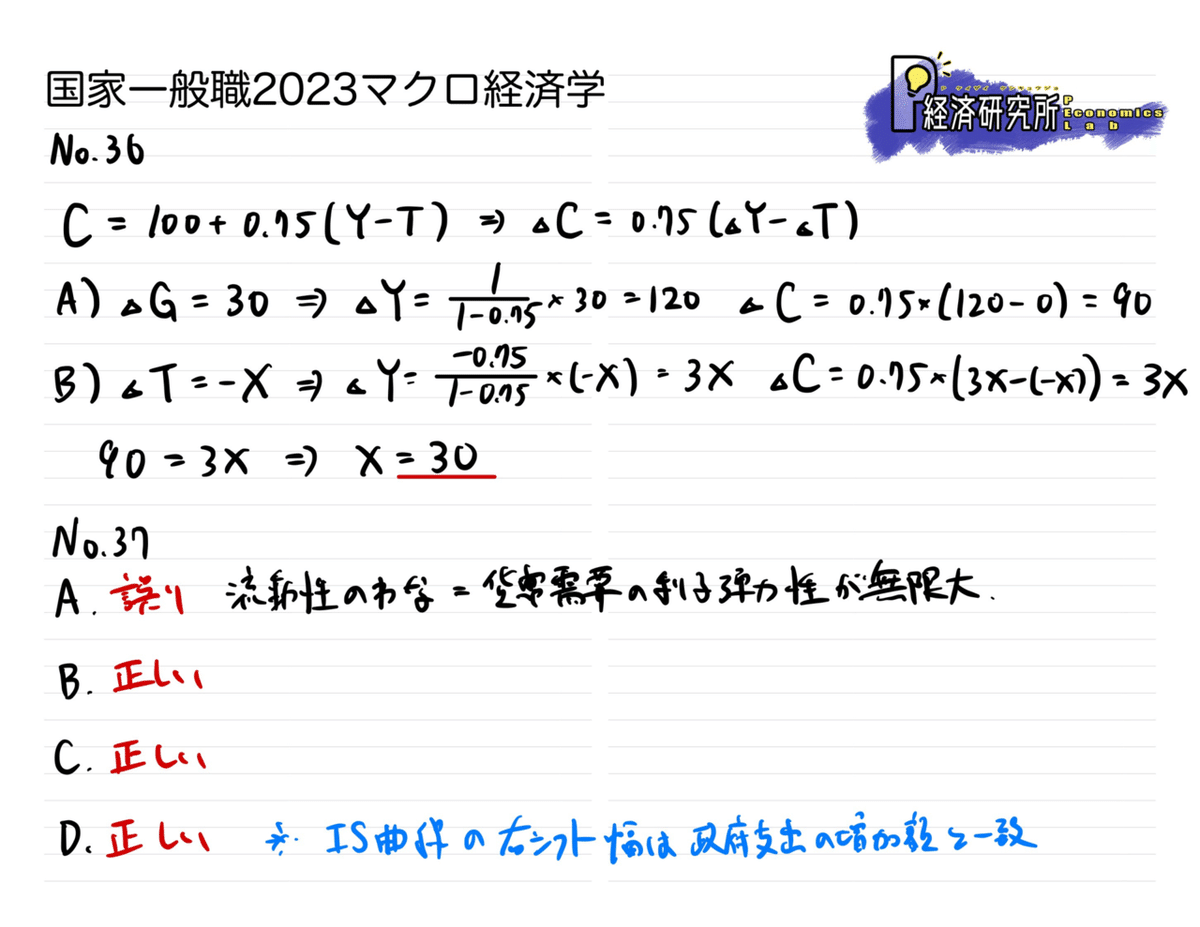 国家一般職2023マクロ経済学
P経済研究所
P Economics Lab
No.36
C = 100 + 0.75(Y-T) ⇒ △C = 0.75(△Y-△T)
A) △G = 30 ⇒ △Y = 1/(1-0.75) × 30 = 120 △C = 0.75×(120-0) = 90
B) △T = -X ⇒ △Y = -0.75/(1-0.75) ×(-X) = 3X △C = 0.75×(3X-(-X)) = 3X
90 = 3X ⇒ X = 30
No.37
A. 誤り 流動性のわな = 貨幣需要の利子弾力性が無限大.
B. 正しい
C. 正しい
D. 正しい ※ IS曲線の右シフト幅は政府支出の増加額と一致